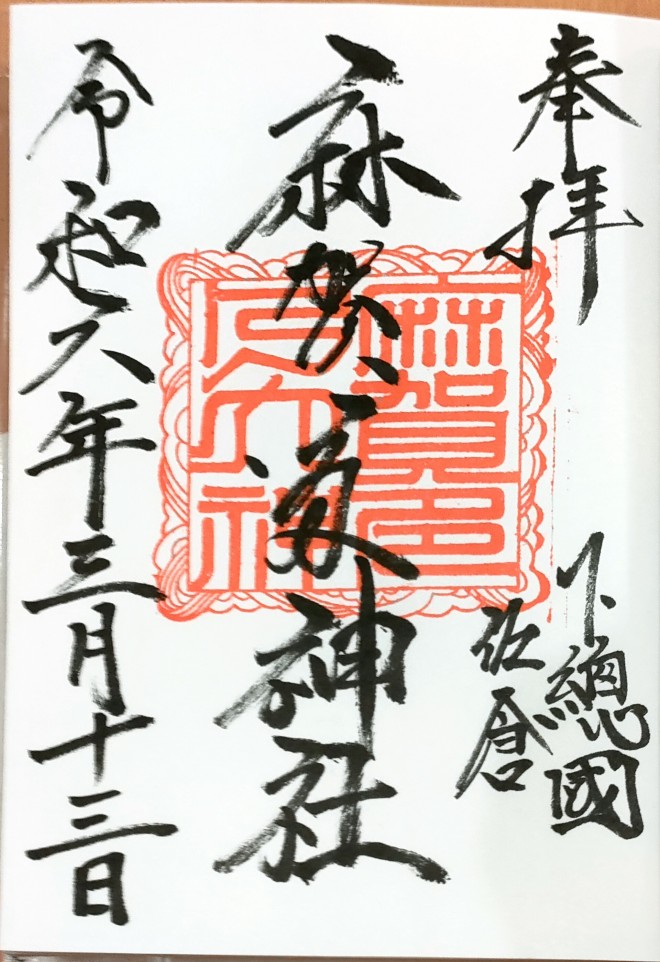 奉拝
下總國
佐倉
麻賀多神社
麻賀多
大神
令和六年三月十三日